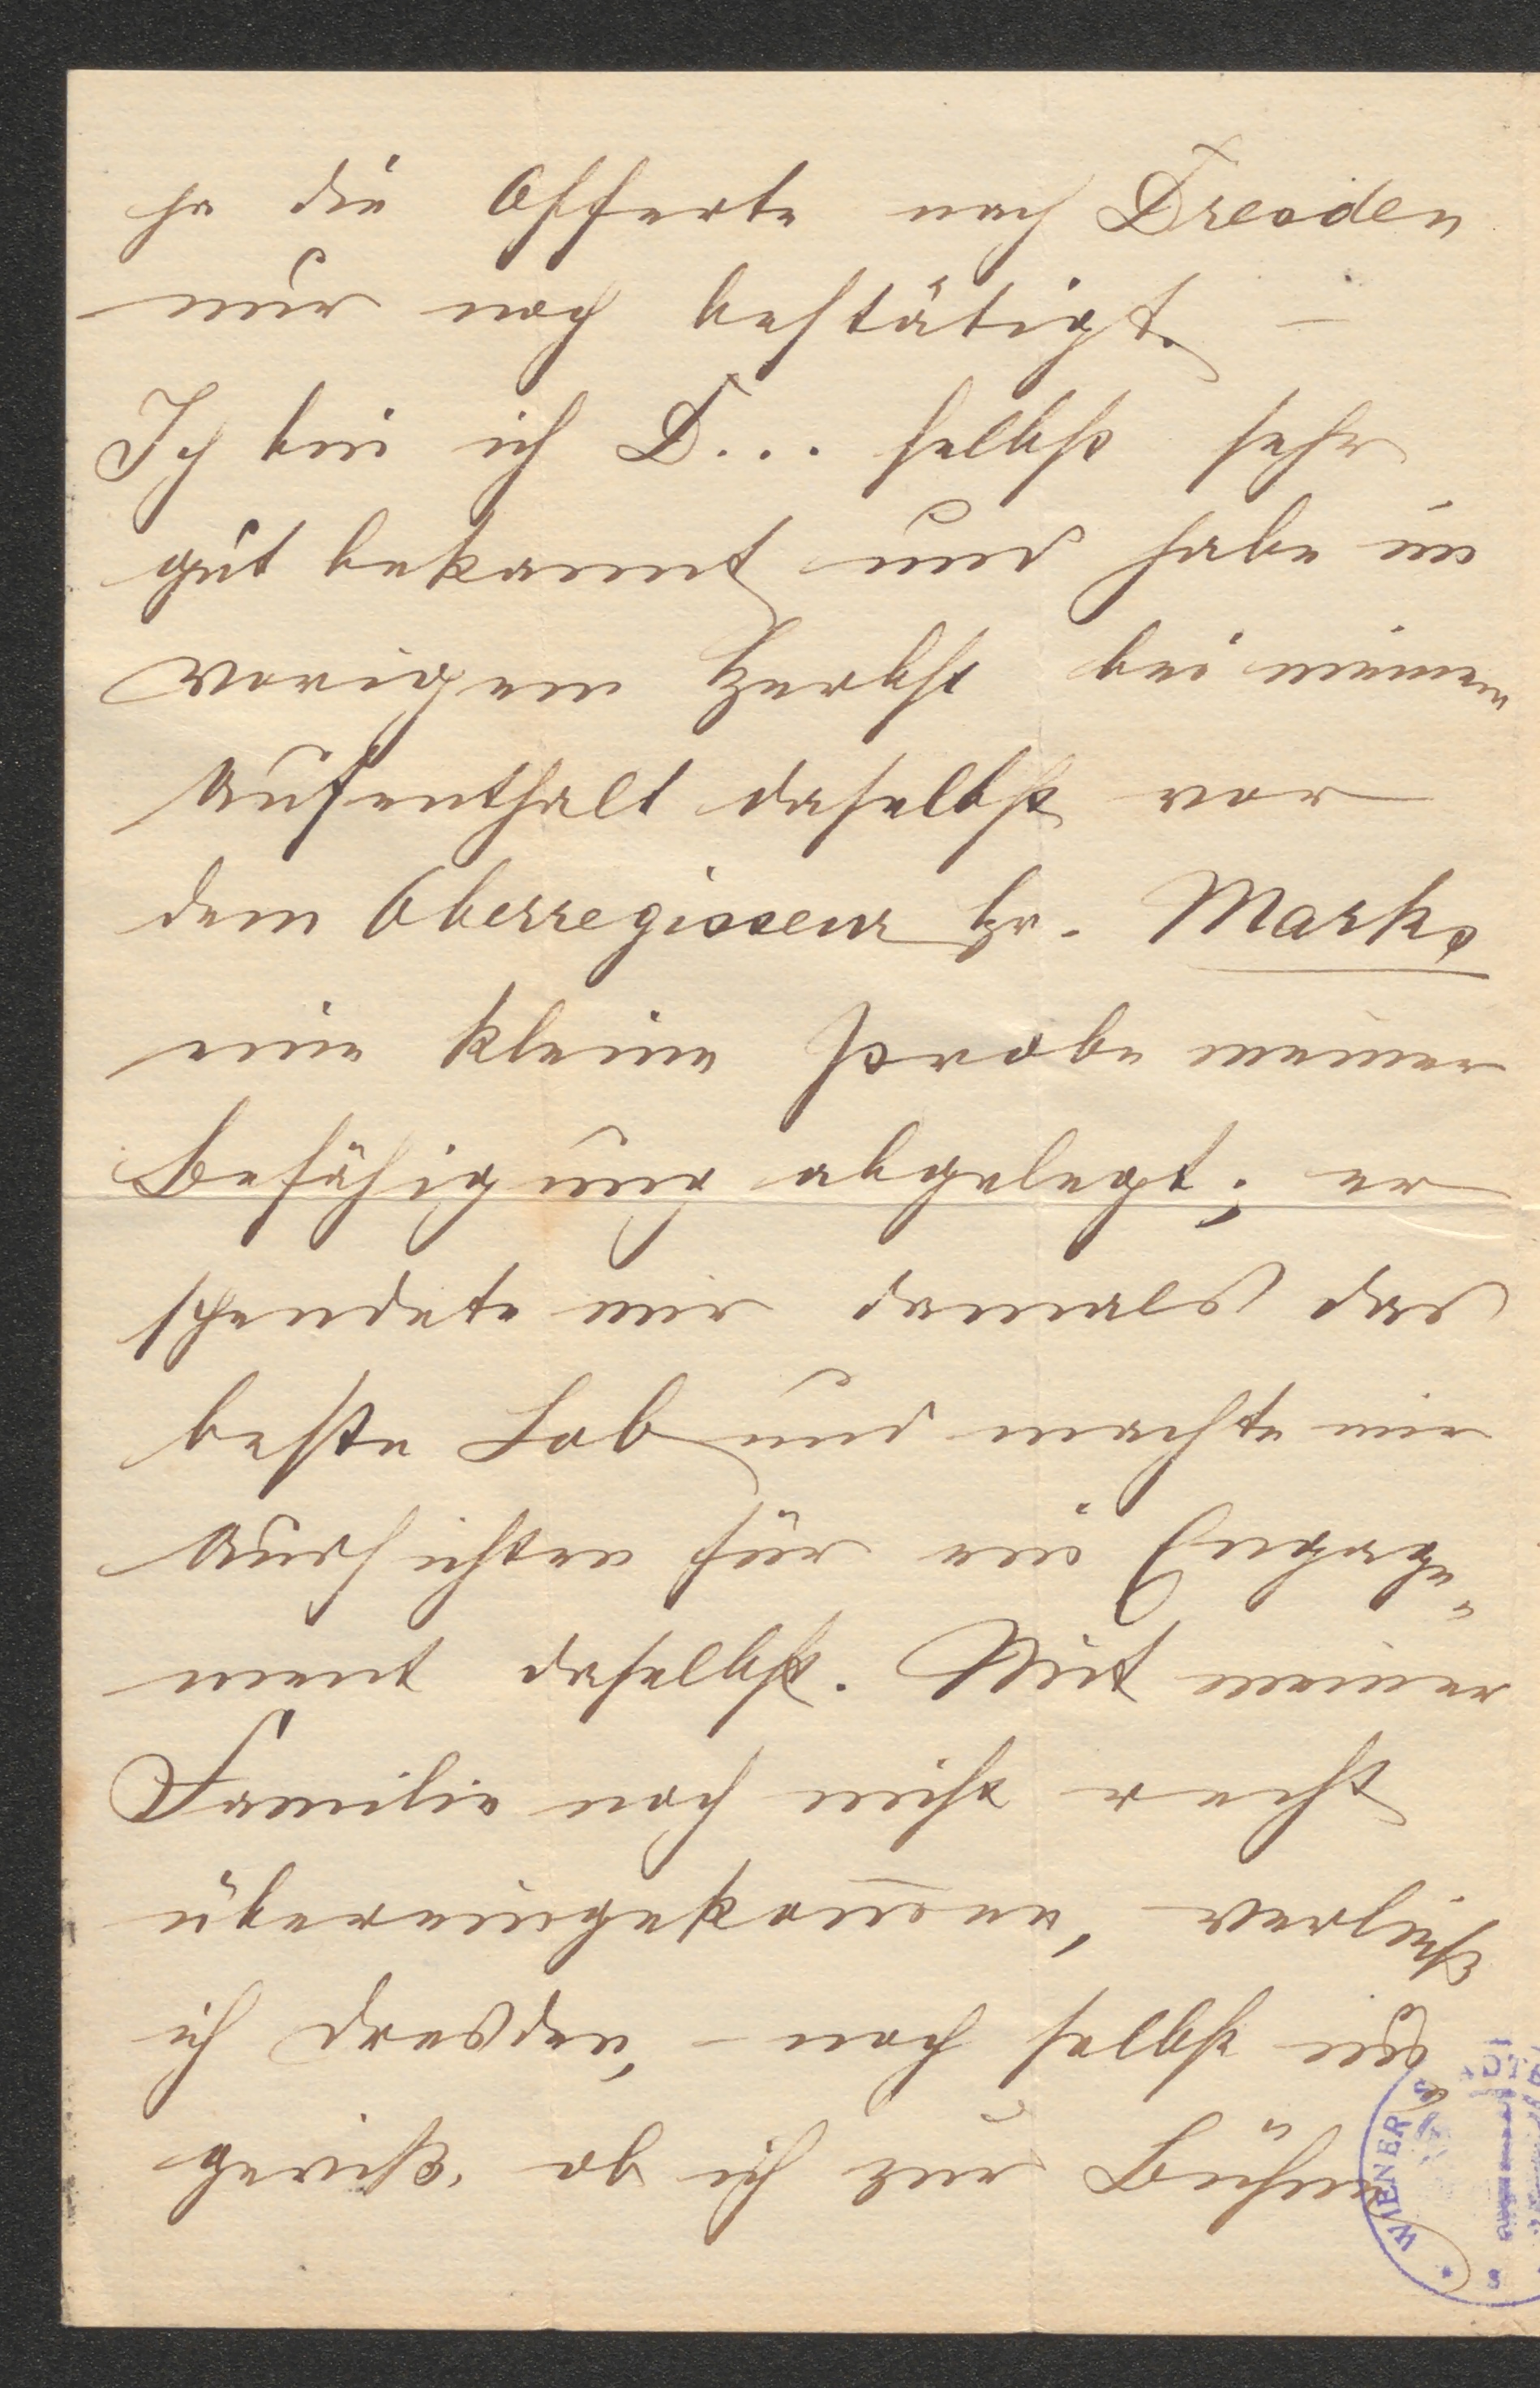 ja die Offerte nach Dresden
nur noch bestätigt. –
Ich bin ich D... selbst sehr
gut bekannt und habe im
vorigem Herbst bei meinem
Aufenthalt daselbst vor
dem Oberregisseur Hr. Marks
eine kleine Probe meiner
Befähigung abgelegt; er
spendete mir damals das
beste Lob und machte mir
Aussichten für ein Engage„
ment daselbst. Mit meiner
Familie noch nicht recht
übereingekom̅en, verließ
ich Dresden, – noch selbst un„
gewiß, ob ich zur Bühne
WIENER